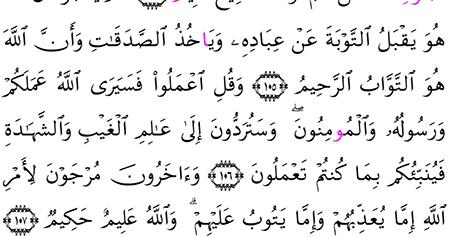 هُوَ يَقْبَلُ ٱلتَّوْبَةَ عَنْ عِبَادِهِۦ وَيَاخُذُ ٱلصَّدَقَٰتِ وَأَنَّ ٱللَّهَ
هُوَ ٱلتَّوَّابُ ٱلرَّحِيمُ ﴿١٠٥﴾ وَقُلِ ٱعْمَلُوا۟ فَسَيَرَى ٱللَّهُ عَمَلَكُمْ
وَرَسُولُهُۥ وَٱلْمُومِنُونَۖ وَسَتُرَدُّونَ إِلَىٰ عَٰلِمِ ٱلْغَيْبِ وَٱلشَّهَٰدَةِ
فَيُنَبِّئُكُم بِمَا كُنتُمْ تَعْمَلُونَ ﴿١٠٦﴾ وَءَاخَرُونَ مُرْجَوْنَ لِأَمْرِ
ٱللَّهِ إِمَّا يُعَذِّبُهُمْ وَإِمَّا يَتُوبُ عَلَيْهِمْۗ وَٱللَّهُ عَلِيمٌ حَكِيمٌ ﴿١٠٧﴾